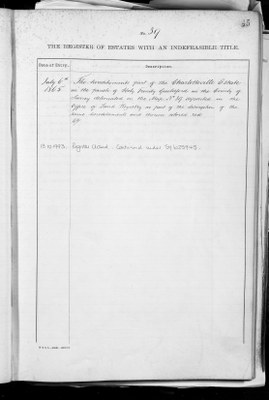 No. 39
THE REGISTER OF ESTATES WITH AN INDEFEASIBLE TITLE.
DATE OF ENTRY.
DESCRIPTION.
July 6th The hereditaments part of the Charlotteville Estate
1865 in the parish of Holy Trinity Guildford in the County of
Surrey delineated on the Map No. 39 deposited in the
Office of Land Registry as part of the description of the
same hereditaments and thereon colored red.
Register Closed. Continued under